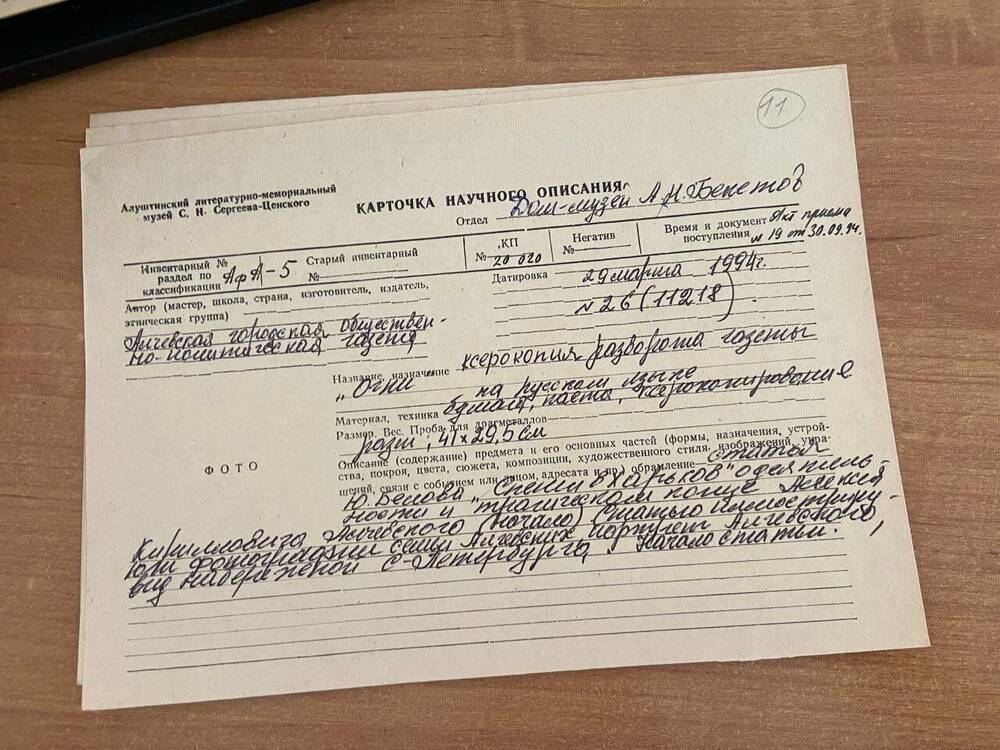 11
Алуштинский литературно-мемориальный
музей С. Н. Сергеева-Ценского
КАРТОЧКА НАУЧНОГО ОПИСАНИЯ
Отдел Дом-музей А.Н.Бекетов
Инвентарный №
раздел по
классификации АфА-5
Старый инвентарный
№
КП
№ 20 020
Негатив
№
Время и документ Акт приема
поступления № 19 от 30.09.94.
Автор (мастер, школа, страна, изготовитель, издатель,
этническая группа)
Алчевская городская обществен-
но-политическая газета
Датировка 29 марта 1994г.
№ 26 (11218)
Название, назначение ксерокопия разворота газеты
"Огни" на русском языке
Материал, техника бумага, паста, ксерокопирование
Размер. Вес. Проба для драгметаллов
разм.: 41 x 29,5 см
ФОТО
Описание (содержание) предмета и его основных частей (формы, назначения, устрой-
ства, покроя, цвета, сюжета, композиции, художественного стиля, изображений, укра-
шений, связи с событием или лицом, адресата и пр.) обрамление статья
Ю. Белова "Спеши в Харьков" о деятель-
ности и "трагическом конце Алексея
Кирилловича Алчевского (начало) Статью иллюстриру-
юти фотографии семьи Алчевских портрет Алчевского,
вид набережной С-Петербурга, Начало статьи.